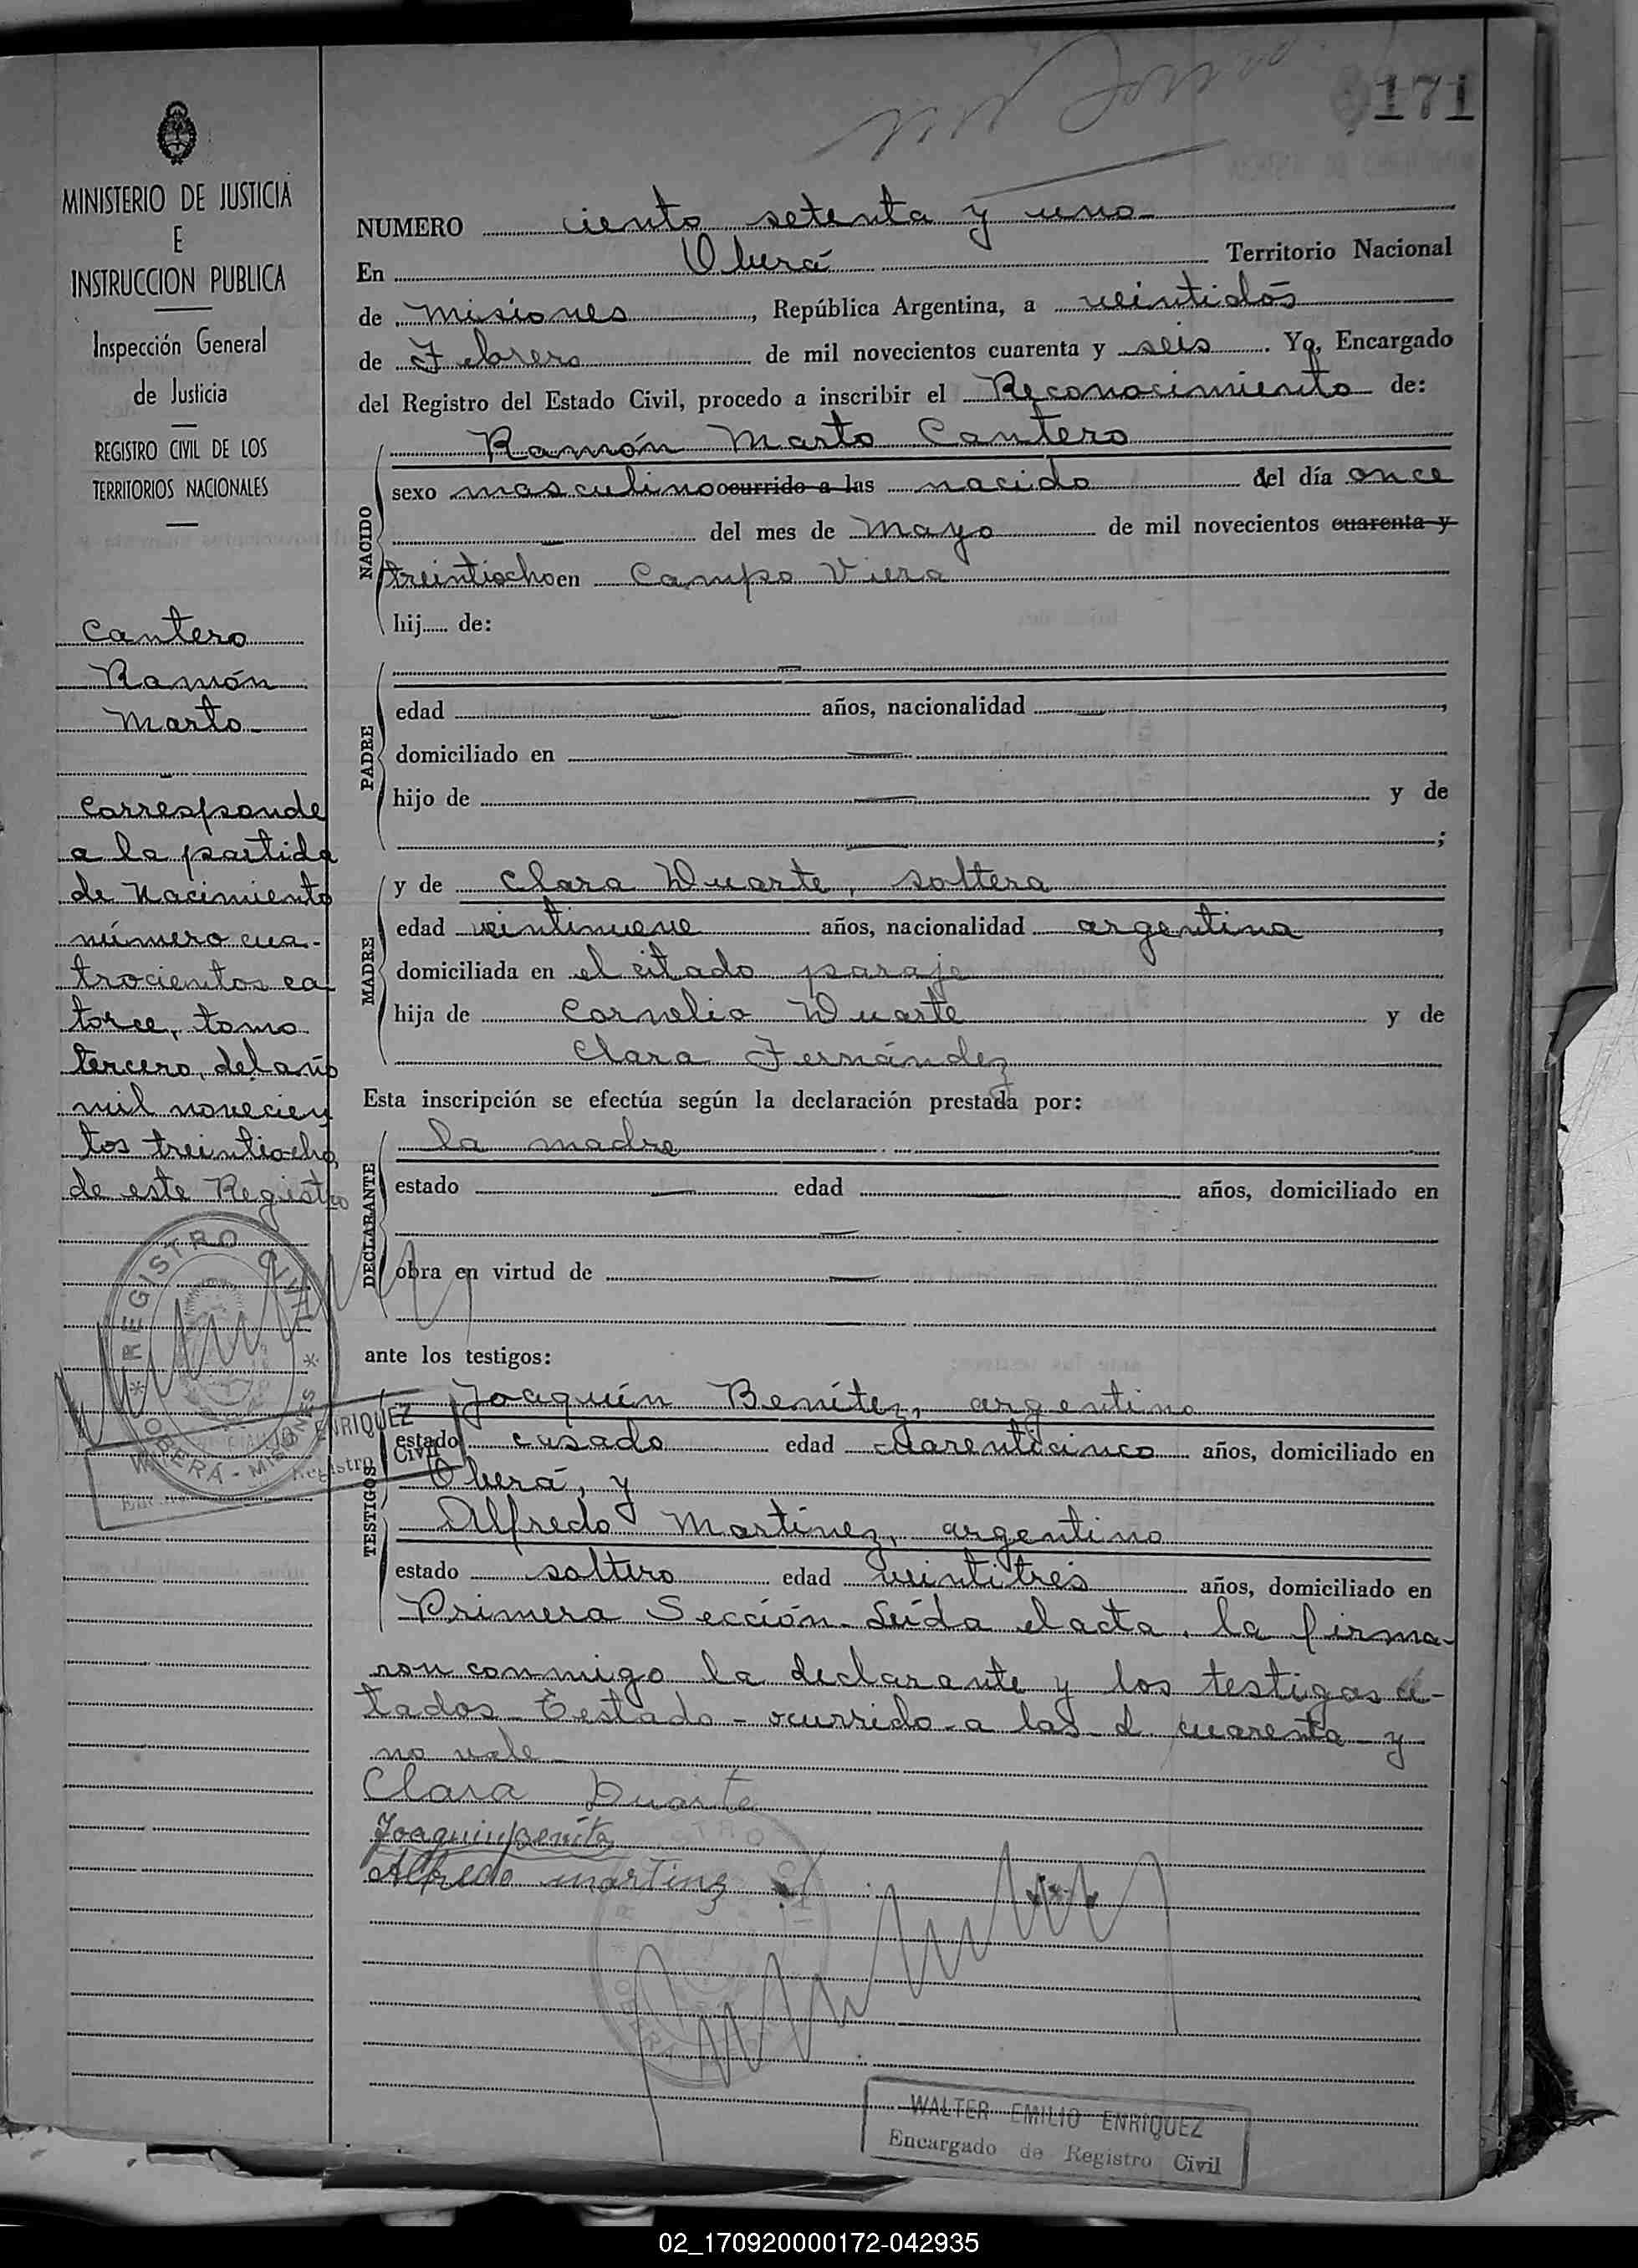 171
MINISTERIO DE JUSTICIA
E
INSTRUCCION PUBLICA
Inspección General
de Justicia
REGISTRO CIVIL DE LOS
TERRITORIOS NACIONALES
Cantero
Ramón
Marto
Corresponde
a la partida
de Nacimiento
número cua-
trocientos ca
torce, tomo
tercero, del año
mil novecien
tos treintiocho
de este Registro
REGISTRO CIVIL
OBERA - MISIONES
ENRIQUEZ
Registro Civil
NUMERO ciento setenta y uno
En Oberá Territorio Nacional
de Misiones, República Argentina, a veintidós
de Febrero de mil novecientos cuarenta y seis. Yo, Encargado
del Registro del Estado Civil, procedo a inscribir el Reconocimiento de:
NACIDO
Ramón Marto Cantero
sexo masculino ocurrido a las nacido del día once
del mes de Mayo de mil novecientos cuarenta y
treintiocho en Campo Viera
hij de:
PADRE
edad años, nacionalidad
domiciliado en
hijo de y de
;
MADRE
y de Clara Duarte, soltera
edad veintinueve años, nacionalidad argentina,
domiciliada en el citado paraje
hija de Cornelio Duarte y de
Clara Fernández
Esta inscripción se efectúa según la declaración prestada por:
DECLARANTE
la madre
estado edad años, domiciliado en
obra en virtud de
ante los testigos:
TESTIGOS
Joaquín Benítez, argentino
estado casado edad cuarenticinco años, domiciliado en
Oberá, y
Alfredo Martínez, argentino
estado soltero edad veintitrés años, domiciliado en
Primera Sección. Leída el acta, la firma-
ron conmigo la declarante y los testigos ci-
tados. Testado - ocurrido a las d cuarenta y
no vale
Clara Duarte
Joaquin Benita
Alfredo martinz
WALTER EMILIO ENRIQUEZ
Encargado de Registro Civil
02_170920000172-042935